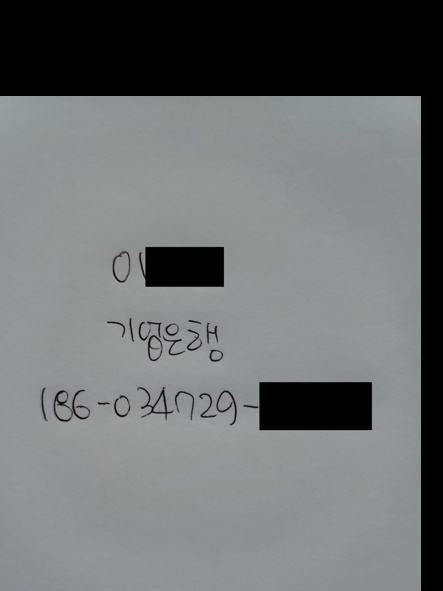 이
기업은행
186-034729-